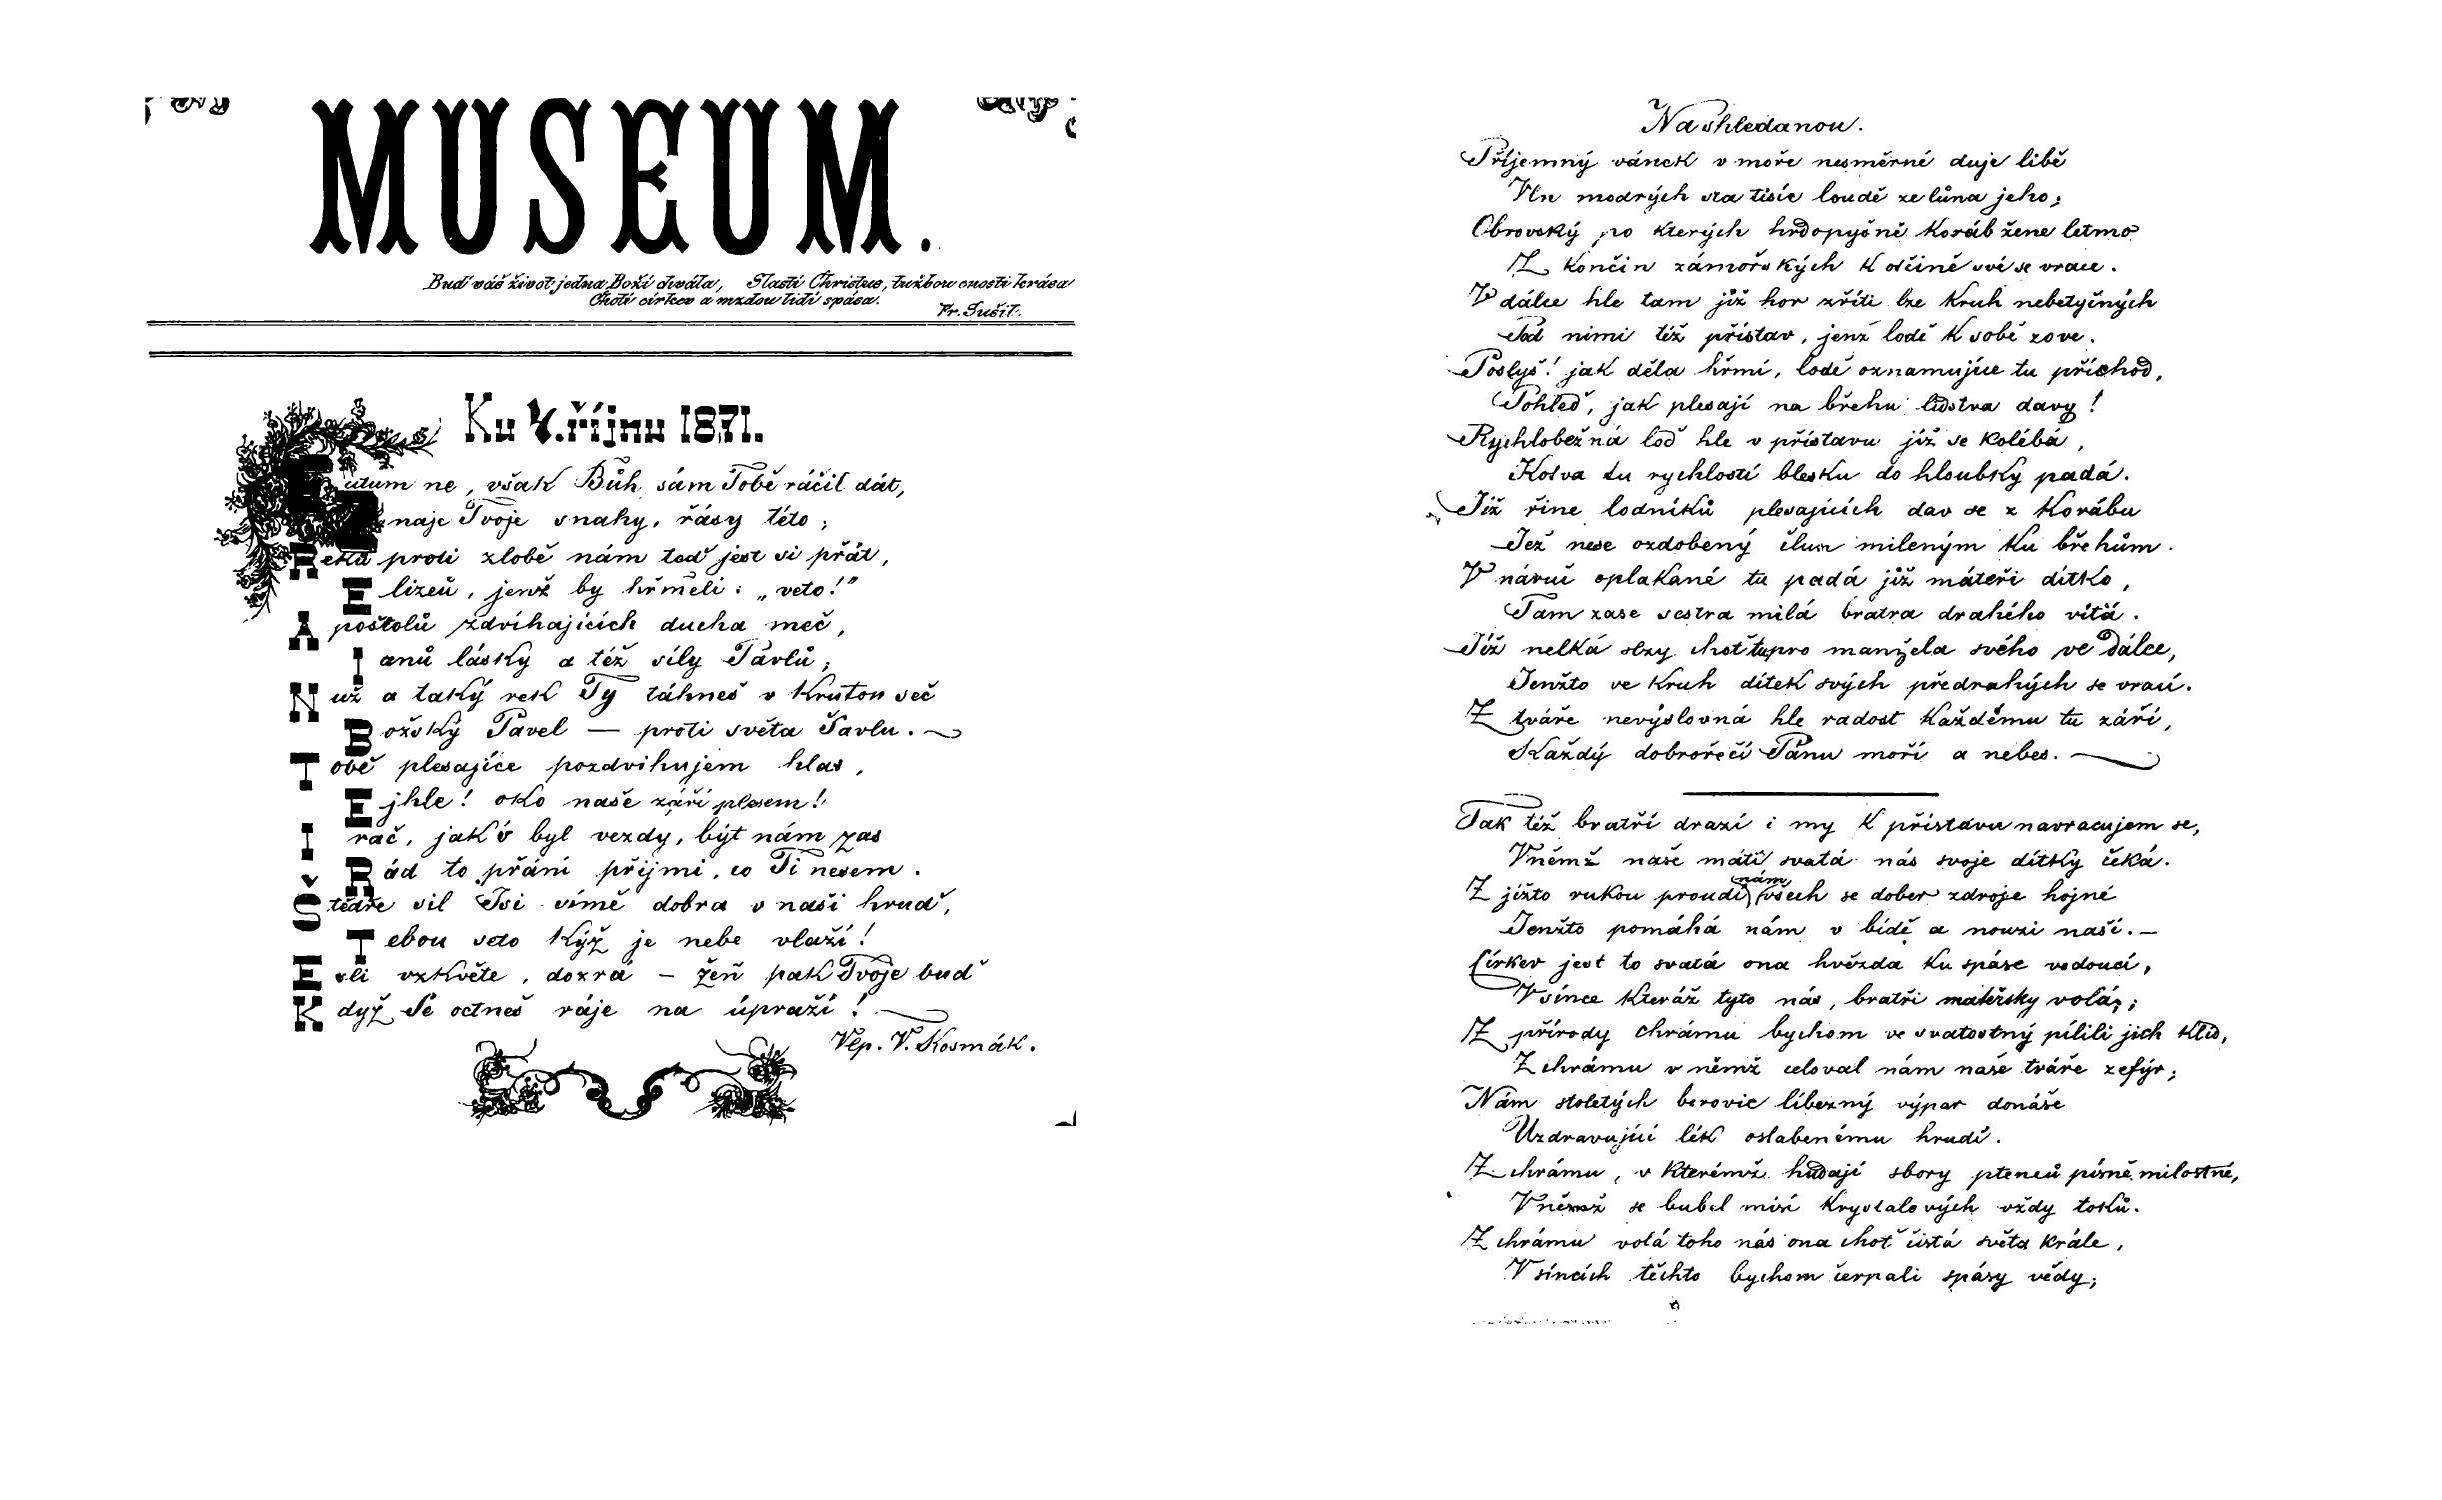 MUSEUM.
Buď váš život jedna Boží chvála, Slastí Christus, tužbou cnosti krása
Chotí církev a mzdou lidí spása.
Fr. Sušil.
Ku V. říjnu 1871.
utum ne, však Bůh sám Tobě ráčil dát,
Znaje Tvoje snahy, řásy této;
Reka proti zlobě nám teď jest si přát,
Elizeů, jenž by hřměli: „veto!"
Apoštolů zdvíhajících ducha meč,
Ianů lásky a též síly Pavlů;
Nuž a taký rek Ty táhneš v krutou seč
Božský Pavel — proti světa Šavlu. —
Tobě plesajíce pozdvihujem hlas,
Ejhle! oko naše září plesem!
Irač, jakós byl vezdy, být nám zas
Rád to přání přijmi, co Ti nesem.
Štědře sil Jsi símě dobra v naši hruď,
Tebou seto kýž je nebe vlaží!
Esli vzkvěte, dozrá – žeň pak Tvoje buď
Když Se octneš ráje na úpraží!
Vlp. V. Kosmák.
Na shledanou.
Příjemný vánek v moře nesměrné duje libě
Vln modrých sta tisíc loudě ze lůna jeho;
Obrovský po kterých hrdopyšně koráb žene letmo
Z končin zámořských k otčině své se vrace.
V dálce hle tam již hor zříti lze kruh nebetyčných
Pod nimi též přístav, jenž lodě k sobě zove.
Poslyš! jak děla hřmí, lodě oznamujíce tu příchod,
Pohleď, jak plesají na břehu lidstva davy!
Rychloběžná loď hle v přístavu již se kolébá,
Kotva tu rychlostí blesku do hloubky padá.
Již řine lodníků plesajících dav se z korábu
Jež nese ozdobený člun mileným ku břehům.
V náruč oplakané tu padá již máteři dítko,
Tam zase sestra milá bratra drahého vítá.
Již nelká slzy choť tu pro manžela svého ve dálce,
Jenžto ve kruh dítek svých předrahých se vrací.
Z tváře nevýslovná hle radost každému tu září,
Každý dobrořečí Pánu moří a nebes. —
Tak též bratří drazí i my k přístavu navracujem se,
V němž naše máti svatá nás svoje dítky čeká.
Z jížto rukou proudí nám všech se dober zdroje hojné
Jenžto pomáhá nám v bídě a nouzi naší. —
Církev jest to svatá ona hvězda ku spáse vedoucí,
V sínce kteráž tyto nás, bratři mateřsky volá;
Z přírody chrámu bychom ve svatostný pílili jich klid,
Z chrámu v němž celoval nám naše tváře zefýr;
Nám stoletých borovic líbezný výpar donáše
Uzdravující lék oslabenému hrudí.
Z chrámu, v kterémž hudají sbory ptenců písně milostné,
V němž se bubel mísí krystalových vždy toků.
Z chrámu volá toho nás ona choť čistá světa krále,
V síncích těchto bychom čerpali spásy vědy;